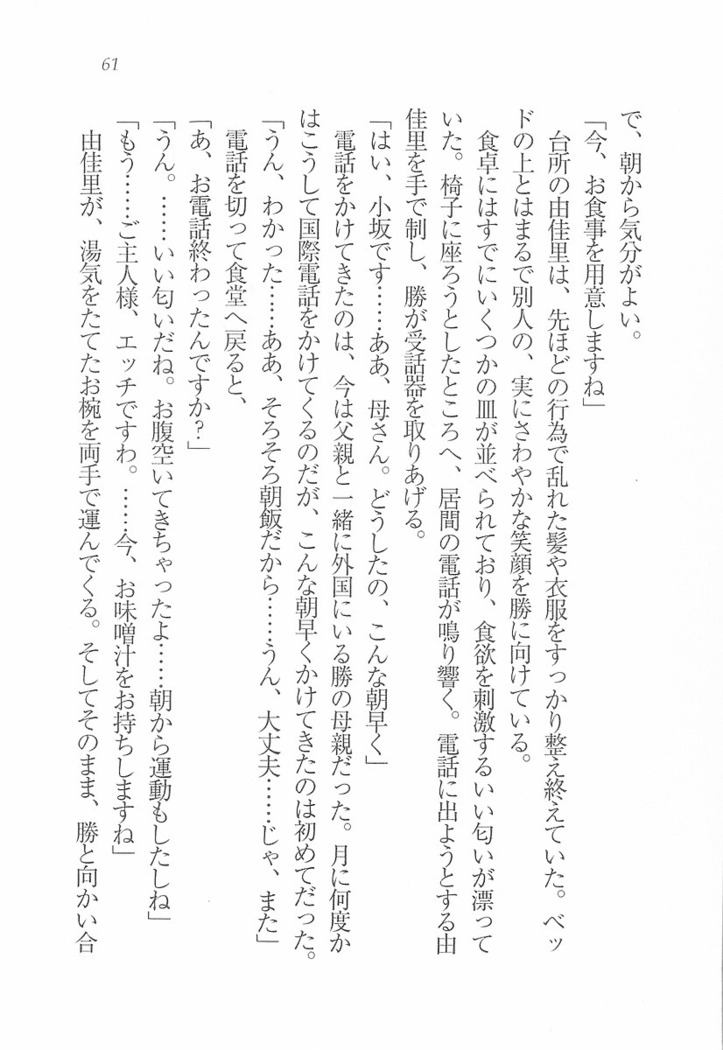 61
で、朝から気分がよい。
「今、お食事を用意しますね」
台所の由佳里は、先ほどの行為で乱れた髪や衣服をすっかり整え終えていた。ベッ
ドの上とはまるで別人の、実にさわやかな笑顔を勝に向けている。
食卓にはすでにいくつかの皿が並べられており、食欲を刺激するいい匂いが漂って
いた。椅子に座ろうとしたところへ、居間の電話が鳴り響く。電話に出ようとする由
佳里を手で制し、勝が受話器を取りあげる。
「はい、小坂です……ああ、母さん。どうしたの、こんな朝早く」
電話をかけてきたのは、今は父親と一緒に外国にいる勝の母親だった。月に何度か
はこうして国際電話をかけてくるのだが、こんな朝早くかけてきたのは初めてだった。
「うん、わかった……ああ、そろそろ朝飯だから……うん、大丈夫……じゃ、また」
電話を切って食堂へ戻ると、
「あ、お電話終わったんですか?」
「うん。……いい匂いだね。お腹空いてきちゃったよ……朝から運動もしたしね」
「もう……ご主人様、エッチですわ。……今、お味噌汁をお持ちしますね」
由佳里が、湯気をたてたお椀を両手で運んでくる。そしてそのまま、勝と向かい合